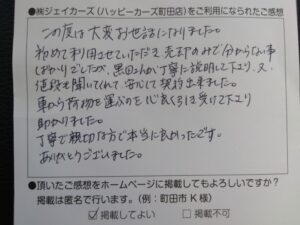 ●㈱ジェイカーズ(ハッピーカーズ町田店)をご利用になられたご感想
この度は大変お世話になりました。
初めて利用させていただき、売却のみで分からない事
ばかりでしたが、黒田さんが丁寧に説明して下り、又、
値段も聞いてくれて、安心して契約出来ました。
車から荷物を運ぶのを心良く引き受けて下り
助かりました。
丁寧で親切な方で本当に良かったです。
ありがとうございました。
●頂いたご感想をホームページに掲載してもよろしいですか?
掲載は匿名で行います。(例:町田市K様)
☑掲載してよい □掲載不可